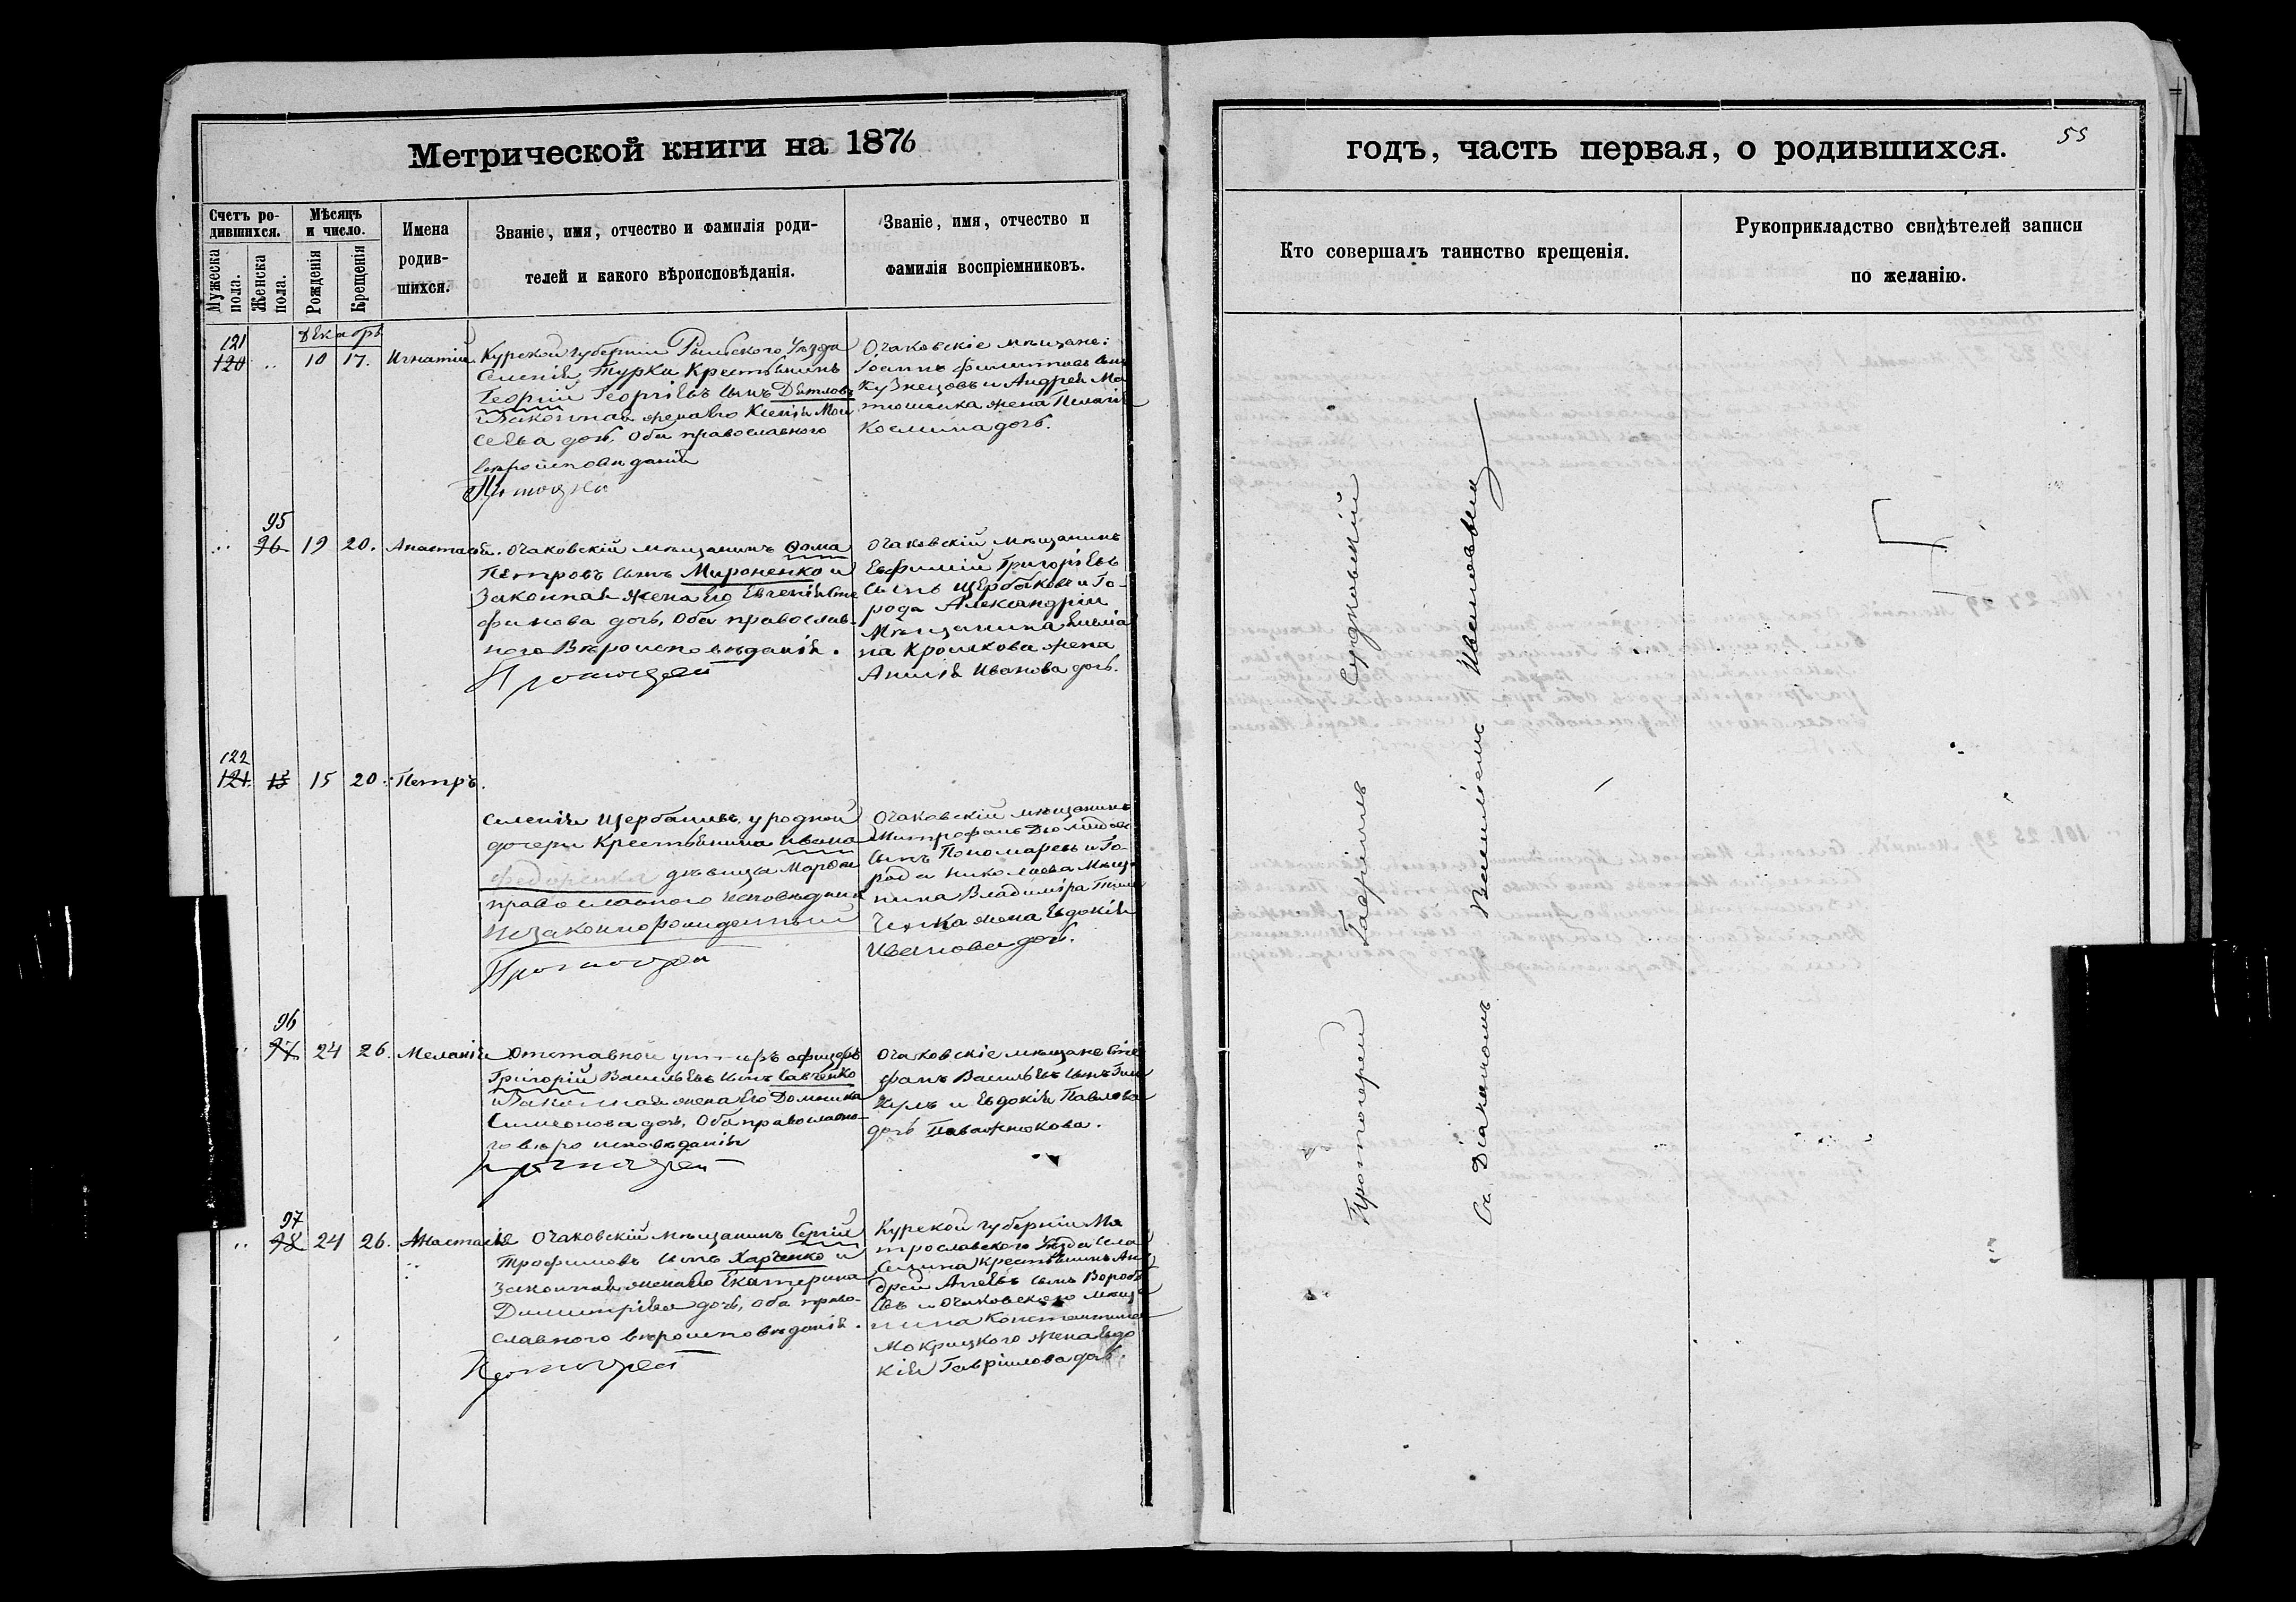 Метрической книги на 1876
годъ, часть первая, о родившихся.
55
Счетъ ро-
дившихся.
Мужеска
пола.
Женска
пола.
Мѣсяцъ
и число.
Рожденія
Крещенія
Имена
родив-
шихся.
Званіе, имя, отчество и фамилія роди-
телей и какого вѣроисповѣданія.
Званіе, имя, отчество и
фамилія воспріемниковъ.
Кто совершалъ таинство крещенія.
Рукоприкладство свидѣтелей записи
по желанію.
Декабрь
121
120
10
17.
Игнатій
Курской губерніи Рыльского Уѣзда
Селенія Турки Крестьянинъ
Георгій Георгіевъ сынъ
и Законная жена его Ксенія Мои
сеева дочь, Оба православного
вѣроисповѣданія
Очаковскіе мѣщане:
Іоаннъ Филиповъ сынъ
Кузнецовъ и Андрея Ма
тюшенка жена Пелагія
Космина дочь.
95
96
19
20.
Анастасія.
Очаковскій мѣщанинъ Ѳома
Петровъ сынъ Мироненко и
Законная жена его Евгенія Сте
фанова дочь, Оба православ-
ного Вѣроисповѣданія.
Протоіерей
Очаковскій Мѣщанинъ
Евфимій Григоріевъ
Сынъ Щербаковъ и Го-
рода Александріи
Мѣщанина
на Крошкова жена
Анисія Иванова дочь.
122
121.
15
15
20.
Петръ.
Селенія у родной
дочери Крестьянина Ивана
Федоренка дѣвицы Марѳы
православного исповѣданія
незаконнорожденный
Протоіерей
Очаковскій мѣщанинъ
Митрофанъ
Сынъ Пономаревъ и Го-
рода Николаева Мѣща
нина Владиміра
жена Евдокія
Иванова дочь.
96
97
24
26.
Меланія
Отставной унтеръ офицеръ
Григорій Васильевъ сынъ Савченко
и Законная жена Его Домника
Симеонова дочь, Оба православно-
го вѣроисповѣданія
Протоіерей
Очаковскіе мѣщане Сте
фанъ Васильевъ сынъ
и Евдокія Павлова
дочь
97
98
24
26.
Анастасія
Очаковскій мѣщанинъ Сергій
Трофимовъ сынъ Харченко и
Законная жена его Екатерина
Димитріева дочь, оба право-
славного вѣроисповѣданія.
Протоіерей
Курской губерніи
Уѣзда села
крестьянинъ Ан
дрей сынъ Воробь
евъ и Очаковского мѣща
нина Константина
Мокрицкого жена Евдо
кія Гавріилова дочь.
Протоіерей Гавріилъ Судковскій
Съ Діакономъ Василіемъ Ивановымъ